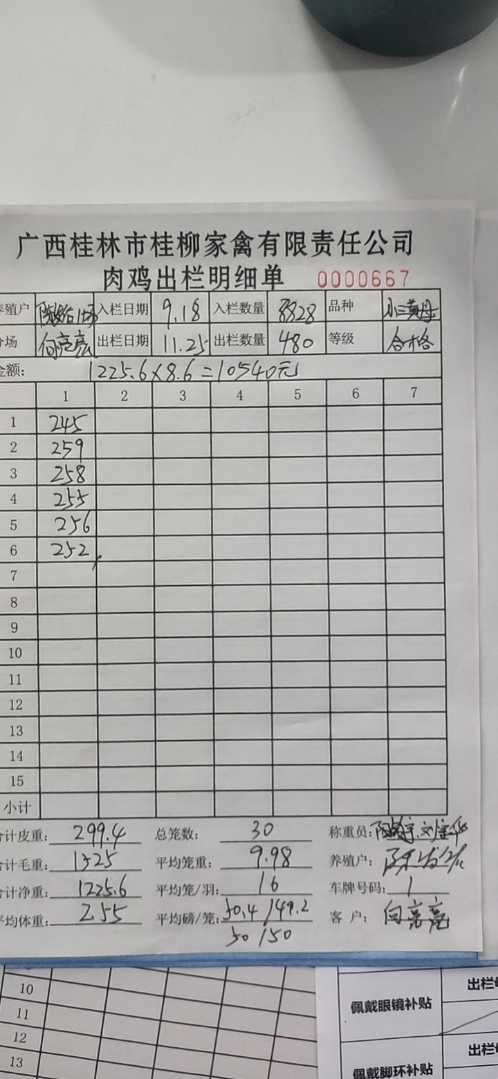 广西桂林市桂柳家禽有限责任公司
肉鸡出栏明细单 0000667
养殖户 入栏日期 9.18 入栏数量 8828 品种 小三黄母
分场 向亮亮 出栏日期 11.25 出栏数量 480 等级 合格
金额: 1225.6×8.6=10540元
1 2 3 4 5 6 7
1 245
2 259
3 258
4 255
5 256
6 252
7
8
9
10
11
12
13
14
15
小计
合计皮重: 299.4 总笼数: 30 称重员:
合计毛重: 1525 平均笼重: 9.98 养殖户:
合计净重: 1225.6 平均笼/羽: 16 车牌号码: 1
平均体重: 2.55 平均磅/笼: 50.4/49.2 客户: 向亮亮
50/50
10
11
12
13
佩戴眼镜补贴
出栏
佩戴脚环补贴
出栏